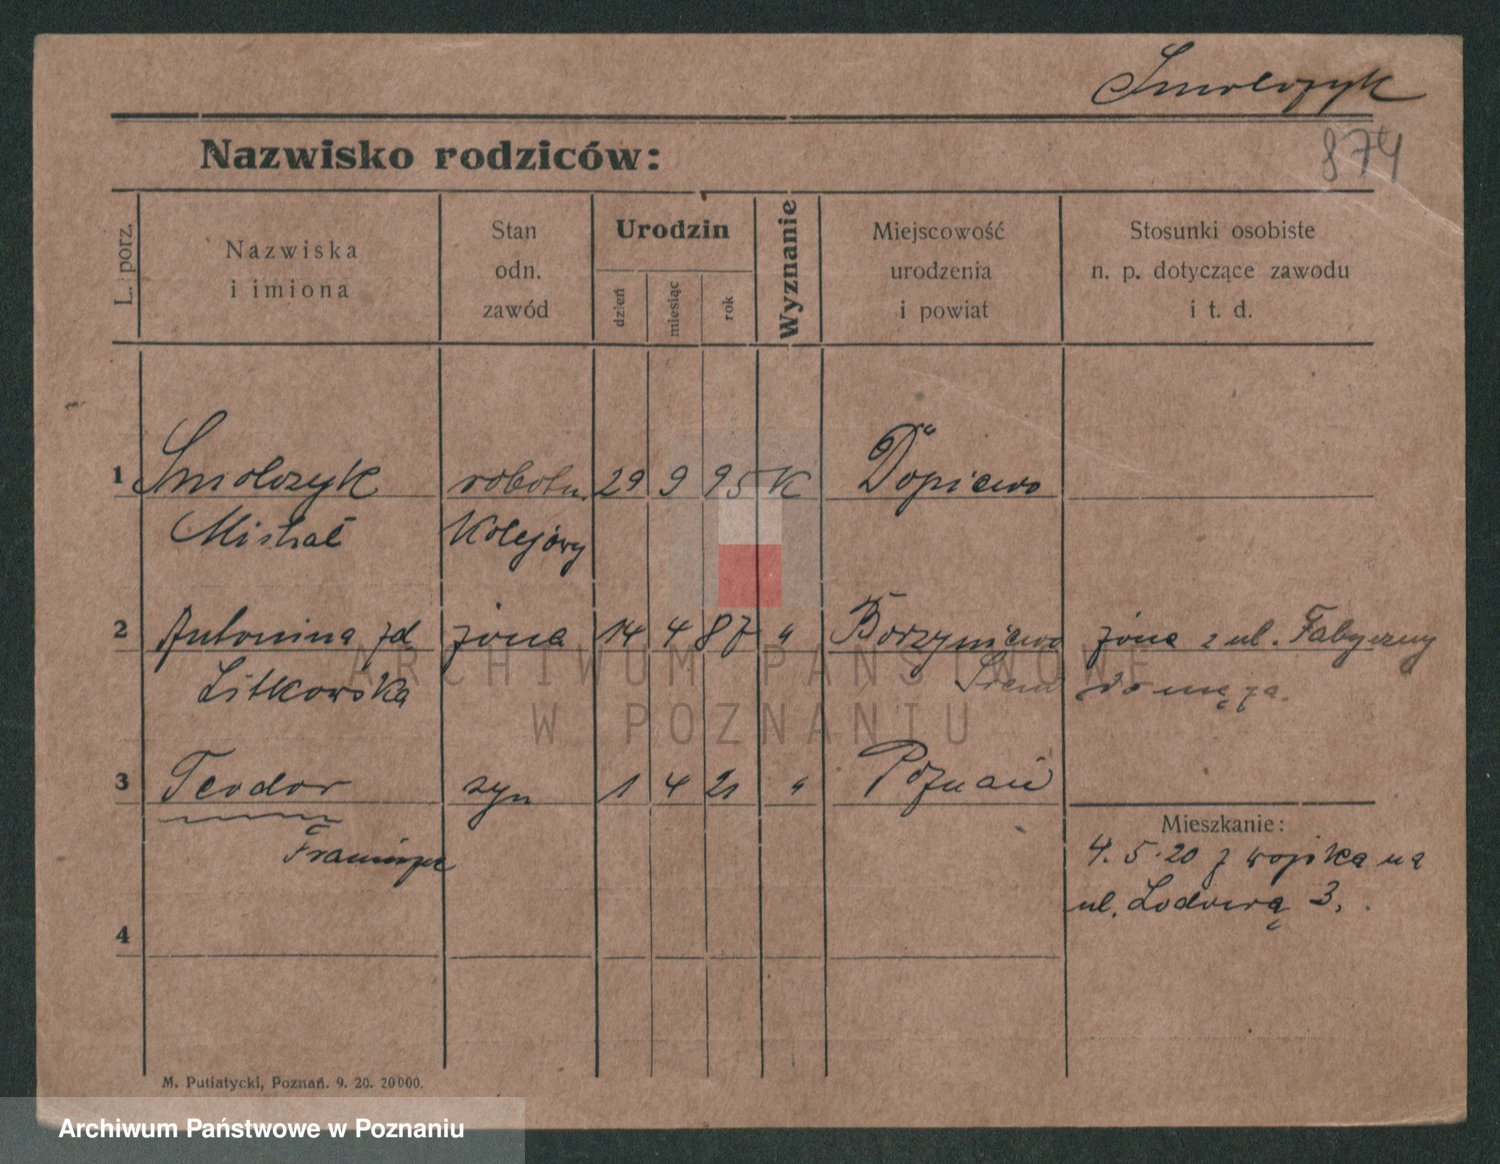 Smolczyk
874
Nazwisko rodziców:
L. porz.
Nazwiska
i imiona
Stan
odn.
zawód
Urodzin
dzień
miesiąc
rok
Wyznanie
Miejscowość
urodzenia
i powiat
Stosunki osobiste
n. p. dotyczące zawodu
i t. d.
1 Smolczyk robotn. 29 9 95 K Dopiewo
Michał Kolejowy
2 Antonina zd żona 14 4 87 " żona z ul. Fabryczny
Litkowska Śrem do męża.
3 Teodor syn 1 4 21 " Poznań
Franciszek
Mieszkanie:
4. 5. 20 z wojska na
ul. Lodową 3.
4
M. Putiatycki, Poznań. 9. 20. 20000.
ARCHIWUM PAŃSTWOWE
W POZNANIU
Archiwum Państwowe w Poznaniu